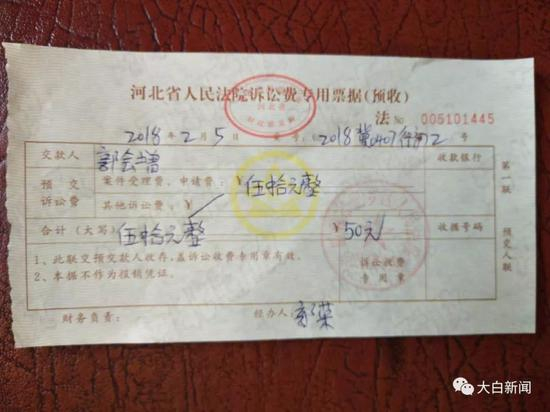 河北省人民法院诉讼费专用票据(预收)
法 No 005101445
2018年2月5日 案号:2018冀0407行初2号
交款人 郭会增 收款银行
预交诉讼费 案件受理费,申请费:¥ 伍拾元整
其他诉讼费:¥
合计(大写) 伍拾元整 ¥50元 收据号码
1、此联交预交款人收存,盖诉讼收费专用章有效。
2、本据不作为报销凭证。
诉讼收费
专用章
财务负责: 经办人:
第一联 预交人联
大白新闻